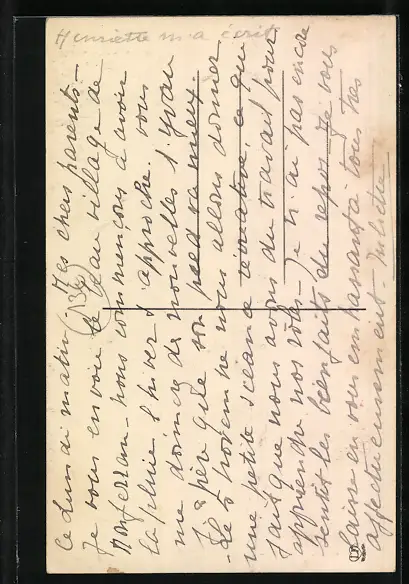 Henriette m'a écrit
Ce Lundi matin. Mes chers parents -
Je vous envoie le beau village de
Monferran - nous commençons d'avoir
la pluie l'hiver s'approche. Vous
me donnez de nouvelles d'Yvan
J'espère que son pied va mieux.
Le 5 novembre nous allons donner
une petite séance récréative, ce qui
fait que nous avons du travail pour
apprendre nos rôles - Je n'ai pas encore
sentit les bienfaits du repos. Je vous
laisse en vous embrassant à tous très
affectueusement - Juliette